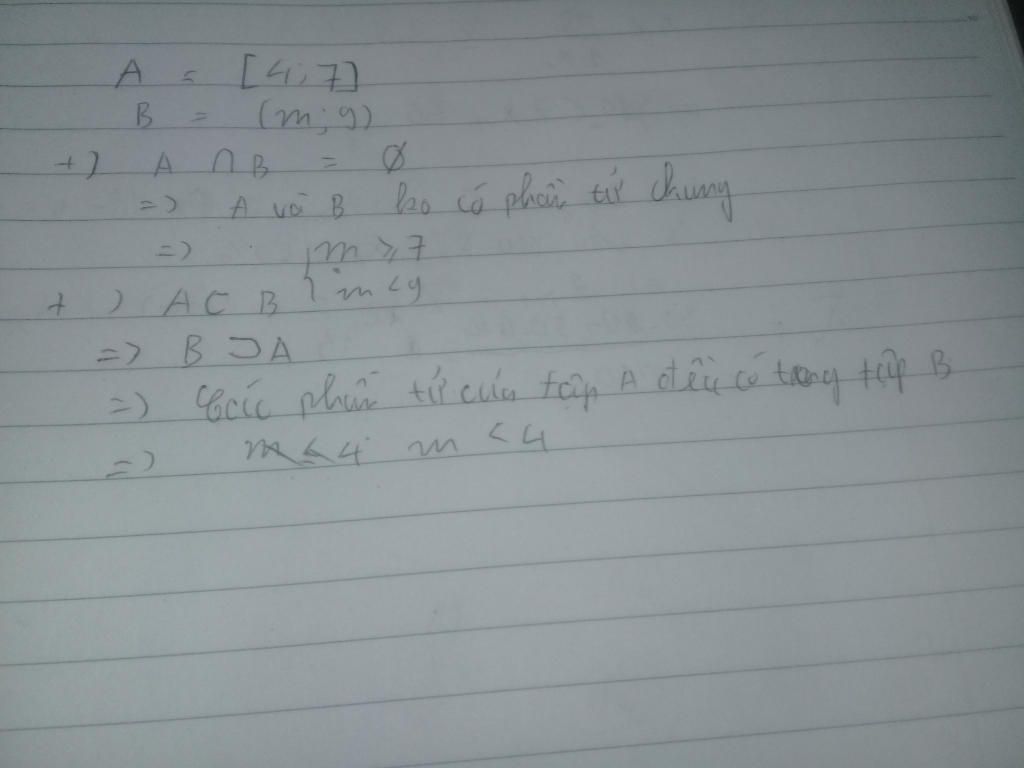 A = [4; 7]
B = (m; 9)
+) A ∩ B = Ø
=> A và B ko có phần tử chung
=> { m ≥ 7
m < 9
+) A ⊂ B
=> B ⊃ A
=> Các phần tử của tập A đều có trong tập B
=> m ≤ 4 m < 4